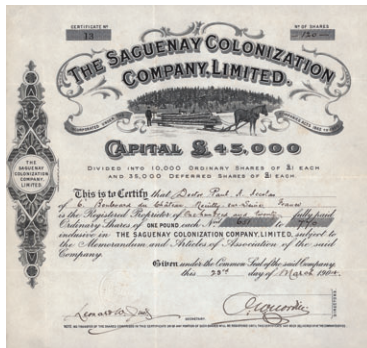 CERTIFICATE Nº
Nº OF SHARES
13
120
THE SAGUENAY COLONIZATION
COMPANY, LIMITED.
CAPITAL £45,000
DIVIDED INTO 10,000 ORDINARY SHARES OF £1 EACH
AND 35,000 DEFERRED SHARES OF £1 EACH.
THE
SAGUENAY
COLONIZATION
COMPANY
LIMITED.
This is to Certify that Doctor Paul A.
of 6, Boulevard du Château Neuilly sur Seine France
is the Registered Proprietor of One hundred and twenty fully paid
Ordinary Shares of ONE POUND each Nos to
inclusive in THE SAGUENAY COLONIZATION COMPANY, LIMITED, subject to
the Memorandum and Articles of Association of the said
Company.
Given under the Common Seal of the said Company
this 23rd day of March 1904
DIRECTORS
SECRETARY